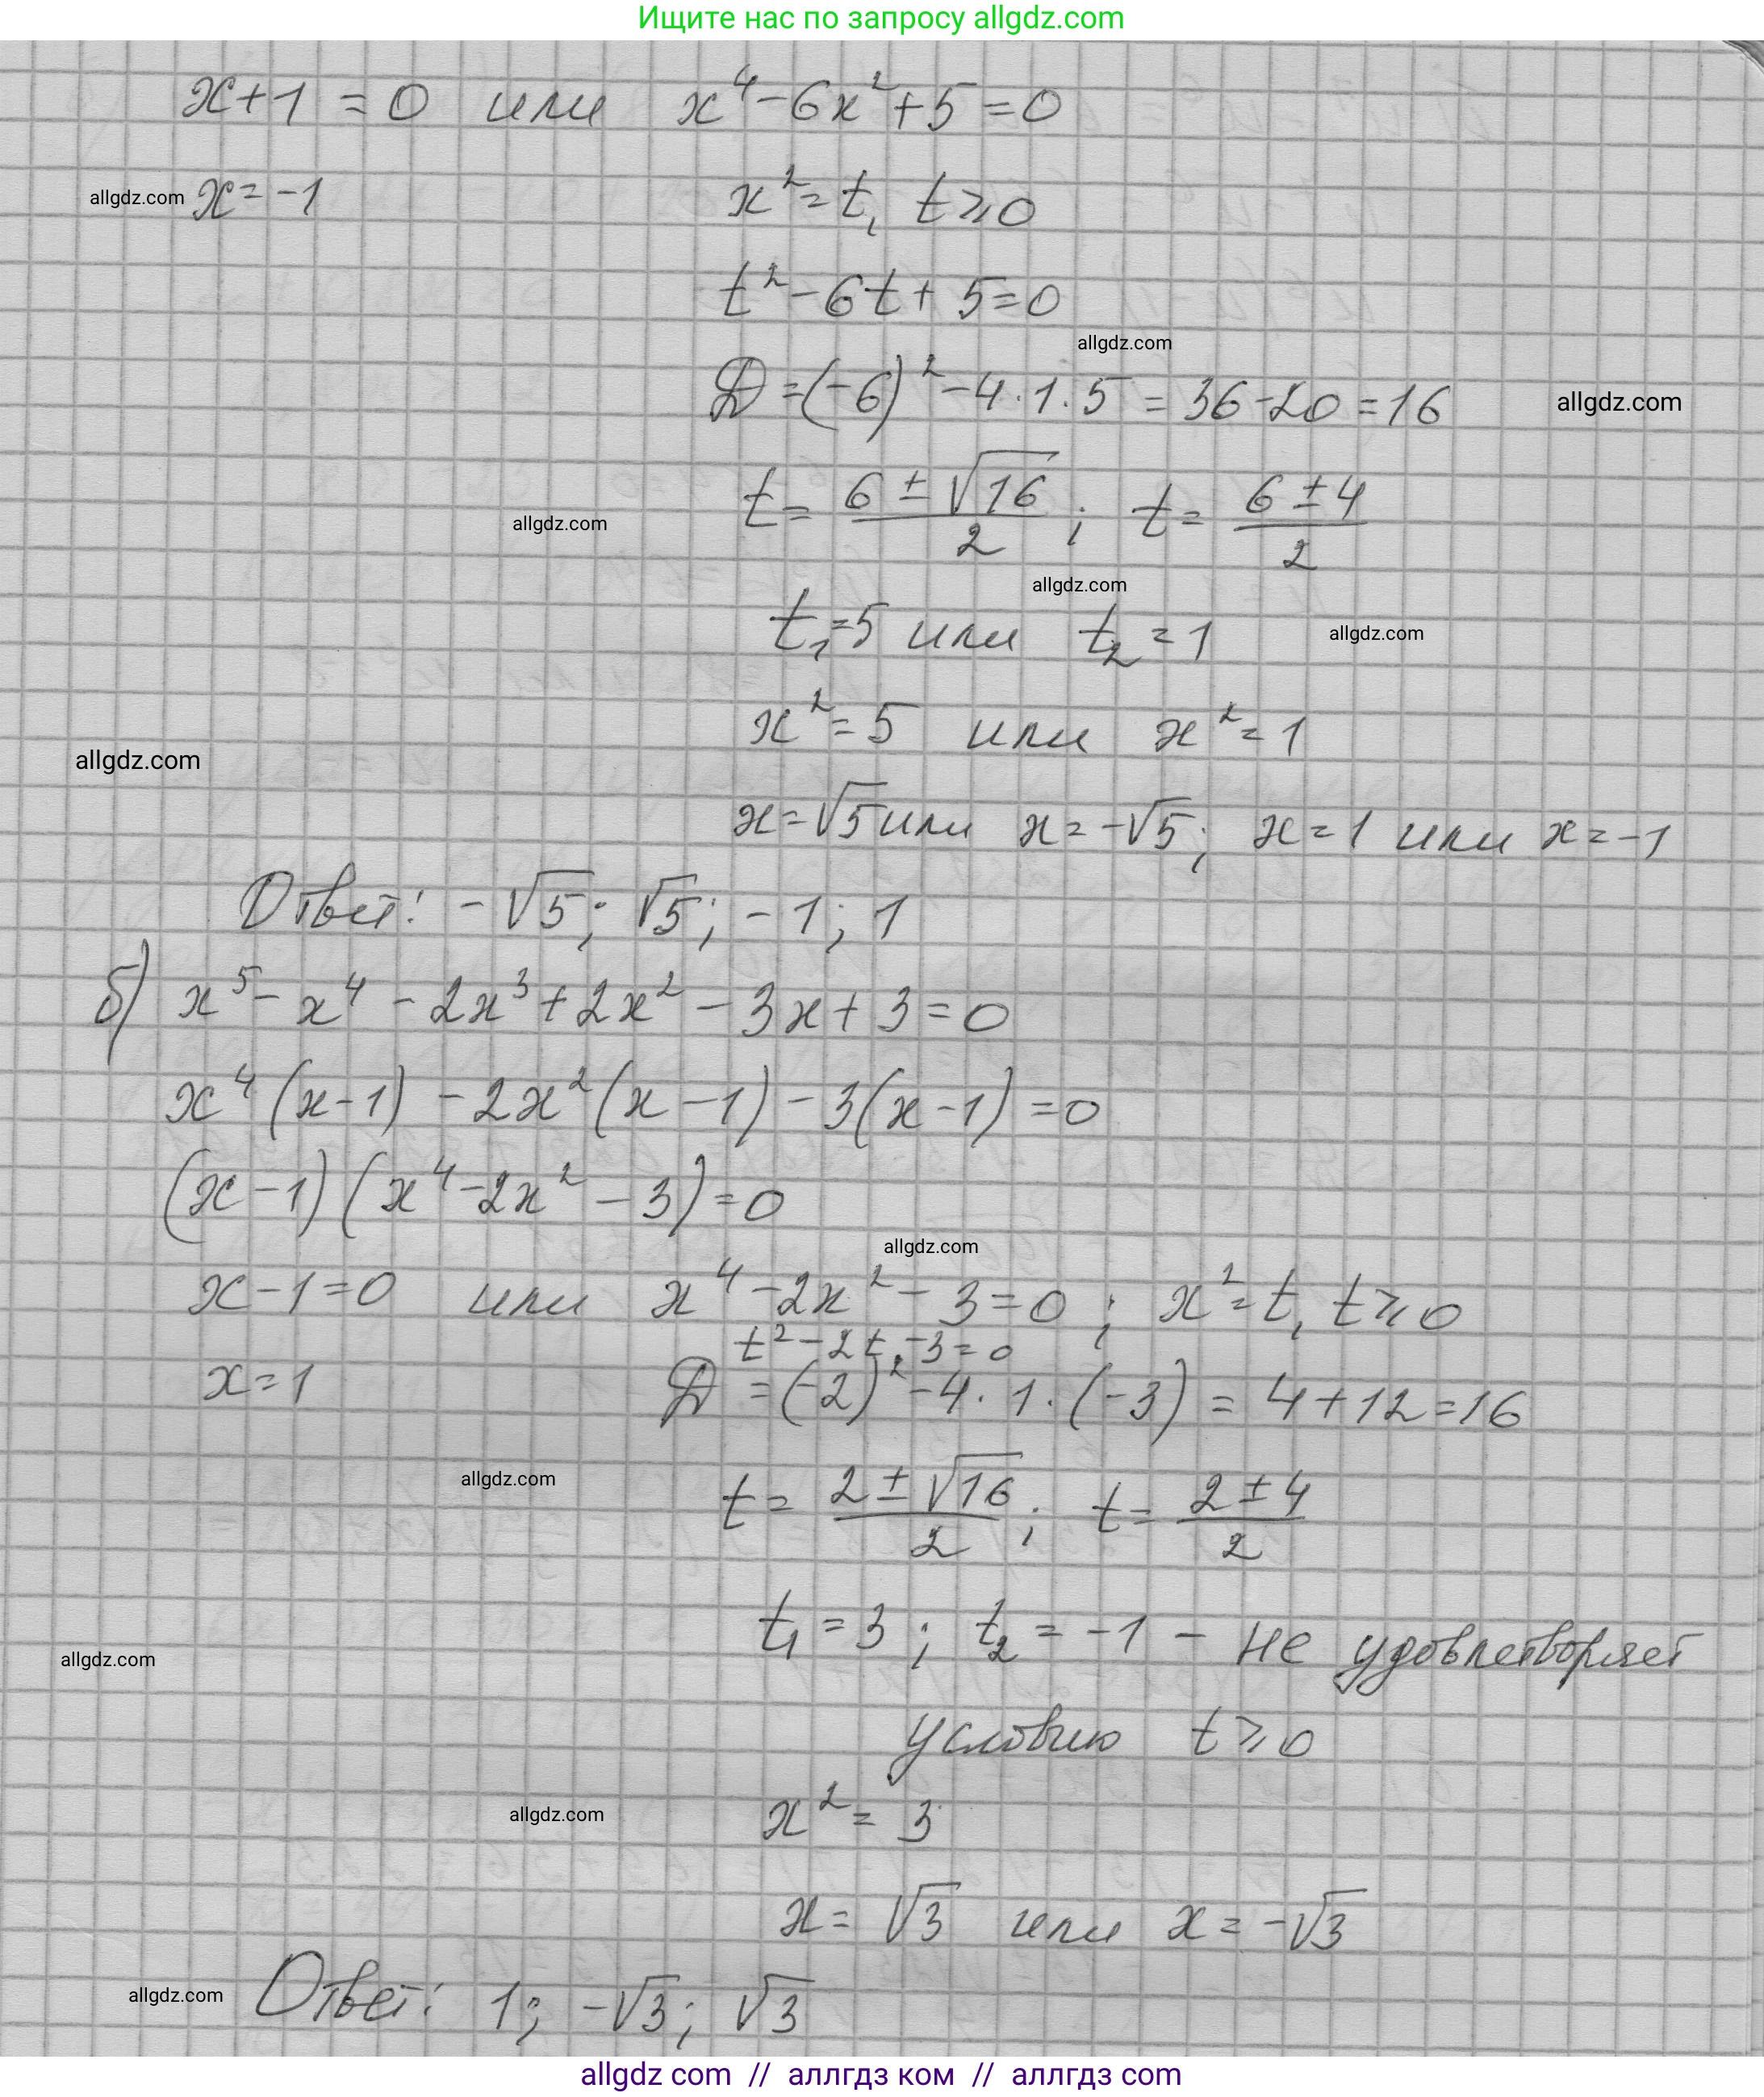 Ищите нас по запросу allgdz.com
x+1 = 0 или x⁴-6x²+5=0
allgdz.com x=-1 x²=t, t≥0
t²-6t+5=0
allgdz.com
D=(-6)²-4·1·5=36-20=16 allgdz.com
allgdz.com t=(6±√16)/2; t=(6±4)/2
allgdz.com
t₁=5 или t₂=1 allgdz.com
x²=5 или x²=1
allgdz.com
x=√5 или x=-√5; x=1 или x=-1
Ответ: -√5; √5; -1; 1
б) x⁵-x⁴-2x³+2x²-3x+3=0
x⁴(x-1)-2x²(x-1)-3(x-1)=0
(x-1)(x⁴-2x²-3)=0
allgdz.com
x-1=0 или x⁴-2x²-3=0; x²=t, t≥0
t²-2t-3=0
x=1 D=(-2)²-4·1·(-3)=4+12=16
allgdz.com t=(2±√16)/2; t=(2±4)/2
allgdz.com t₁=3; t₂=-1 - не удовлетворяет
условию t≥0
allgdz.com x²=3
x=√3 или x=-√3
allgdz.com Ответ: 1; -√3; √3
allgdz com // аллгдз ком // аллгдз com